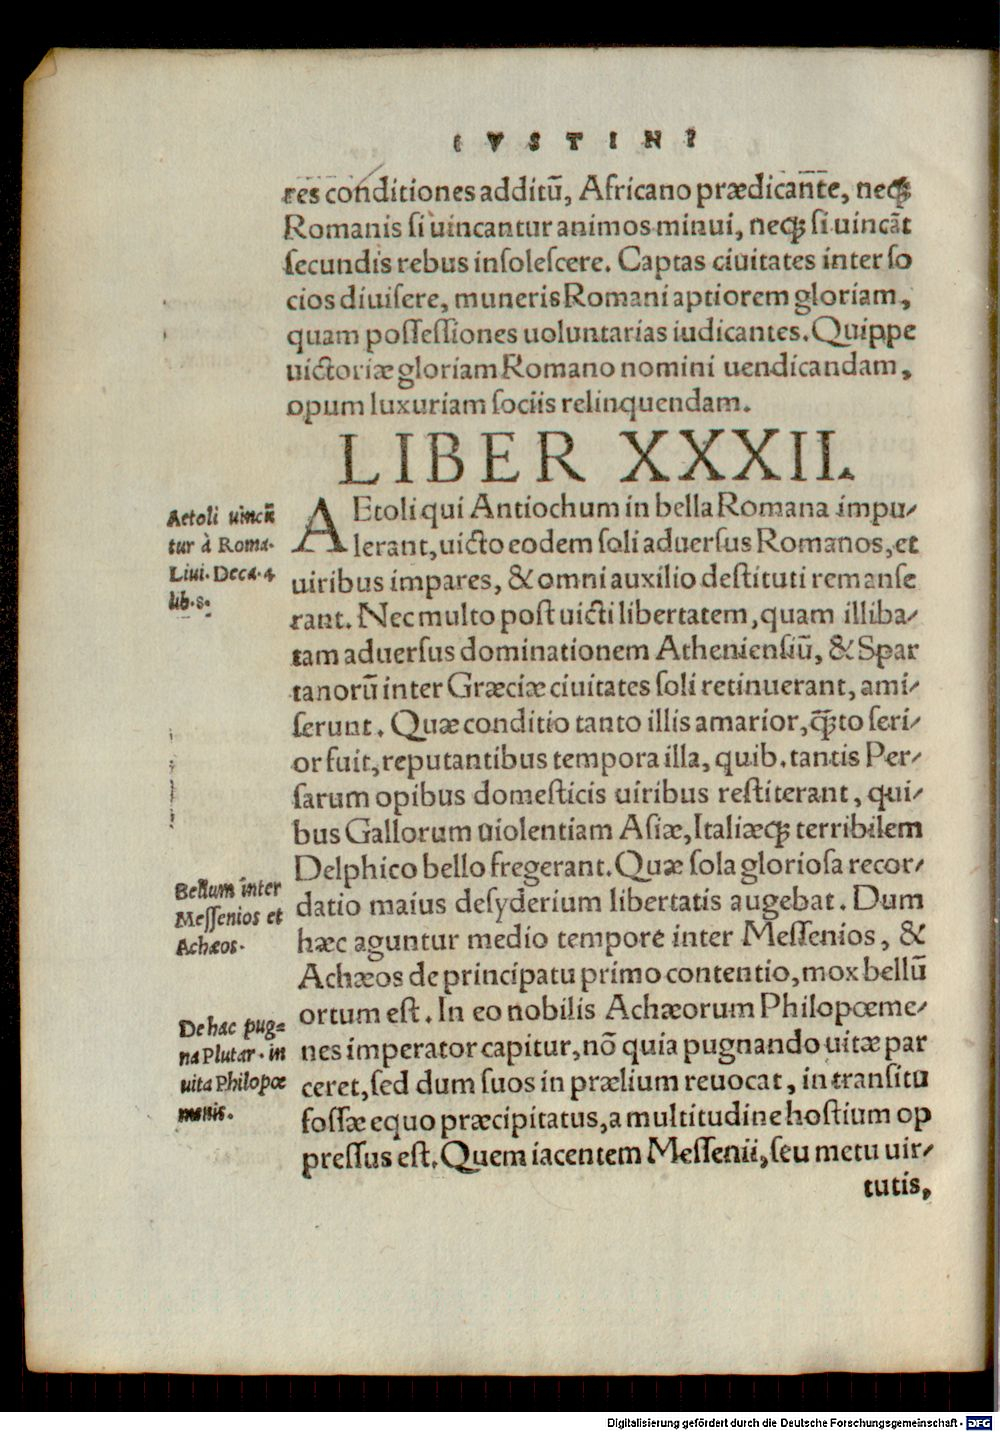 IVSTINI
res conditiones additū, Africano prædicante, neqꝫ
Romanis si uincantur animos minui, neqꝫ si uincāt
secundis rebus insolescere. Captas ciuitates inter so
cios diuisere, muneris Romani aptiorem gloriam,
quam possessiones uoluntarias iudicantes. Quippe
uictoriæ gloriam Romano nomini uendicandam,
opum luxuriam sociis relinquendam.
LIBER XXXII.
Aetoli uincū
tur à Roma.
Liui. Deca. 4
lib. 8.
AEtoli qui Antiochum in bella Romana impu/
lerant, uicto eodem soli aduersus Romanos, et
uiribus impares, & omni auxilio destituti remanse
rant. Nec multo post uicti libertatem, quam illiba/
tam aduersus dominationem Atheniensiū, & Spar
tanorū inter Græciæ ciuitates soli retinuerant, ami/
serunt. Quæ conditio tanto illis amarior, q̄ꝫto seri/
or fuit, reputantibus tempora illa, quib. tantis Per/
sarum opibus domesticis uiribus restiterant, qui/
bus Gallorum uiolentiam Asiæ, Italiæqꝫ terribilem
Delphico bello fregerant. Quæ sola gloriosa recor/
datio maius desyderium libertatis augebat. Dum
hæc aguntur medio tempore inter Messenios, &
Achæos de principatu primo contentio, mox bellū
ortum est. In eo nobilis Achæorum Philopœme/
nes imperator capitur, nō quia pugnando uitæ par
ceret, sed dum suos in prælium reuocat, in transitu
fossæ equo præcipitatus, a multitudine hostium op
pressus est. Quem iacentem Messenii, seu metu uir/
tutis,
Bellum inter
Messenios et
Achæos.
De hac pug=
na Plutar. in
uita Philopœ
menis.
Digitalisierung gefördert durch die Deutsche Forschungsgemeinschaft - DFG